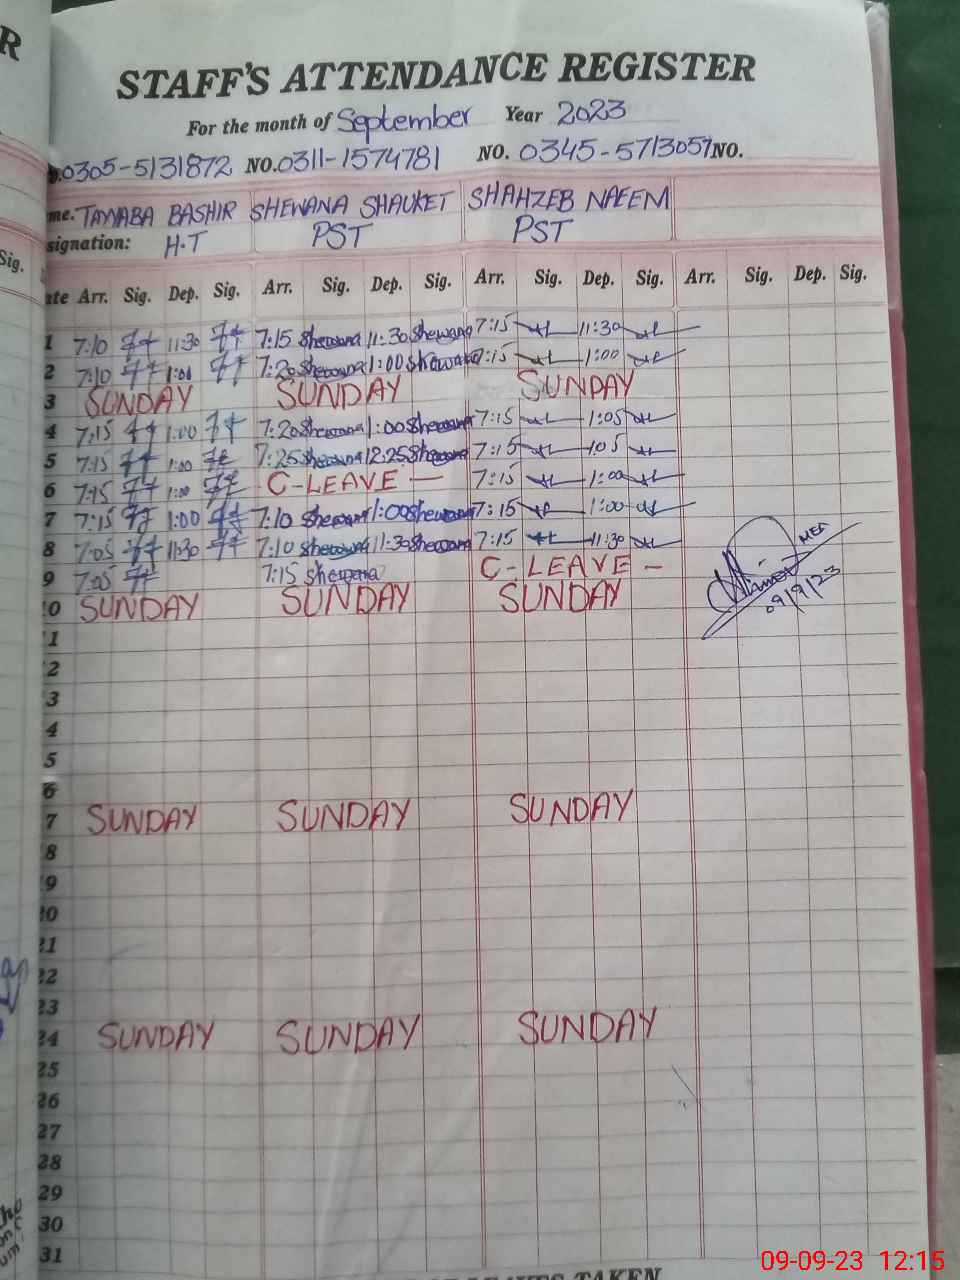 STAFF'S ATTENDANCE REGISTER
For the month of September Year 2023
0305-5131872 NO. 0311-1574781 NO. 0345-5713057 NO.
me. TAYYABA BASHIR SHEWANA SHAUKET SHAHZEB NAEEM
signation: H.T PST PST
Sig. ate Arr. Sig. Dep. Sig. Arr. Sig. Dep. Sig. Arr. Sig. Dep. Sig. Arr. Sig. Dep. Sig.
1 7:10 11:30 7:15 Shewana 11:30 Shewana 7:15 11:30
2 7:10 1:00 7:20 Shewana 1:00 Shewana 7:15 1:00
3 SUNDAY SUNDAY SUNDAY
4 7:15 1:00 7:20 Shewana 1:00 Shewana 7:15 1:05
5 7:15 1:00 7:25 Shewana 12:25 Shewana 7:15 1:05
6 7:15 1:00 C-LEAVE — 7:15 1:00
7 7:15 1:00 7:10 Shewana 1:00 Shewana 7:15 1:00
8 7:05 11:30 7:10 Shewana 11:30 Shewana 7:15 11:30 MEA
9 7:05 7:15 Shewana C-LEAVE — 09/9/23
0 SUNDAY SUNDAY SUNDAY
1
2
3
4
5
6
7 SUNDAY SUNDAY SUNDAY
8
9
20
21
22
23
24 SUNDAY SUNDAY SUNDAY
25
26
27
28
29
30
31
09-09-23 12:15